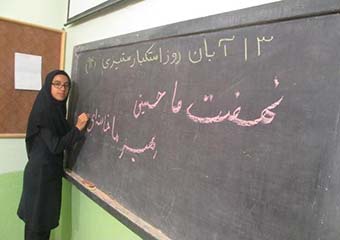 ۱۳ آبان روز استکبار ستیزی
نهضت ما حسینی
رهبر ما خامنه‌ای